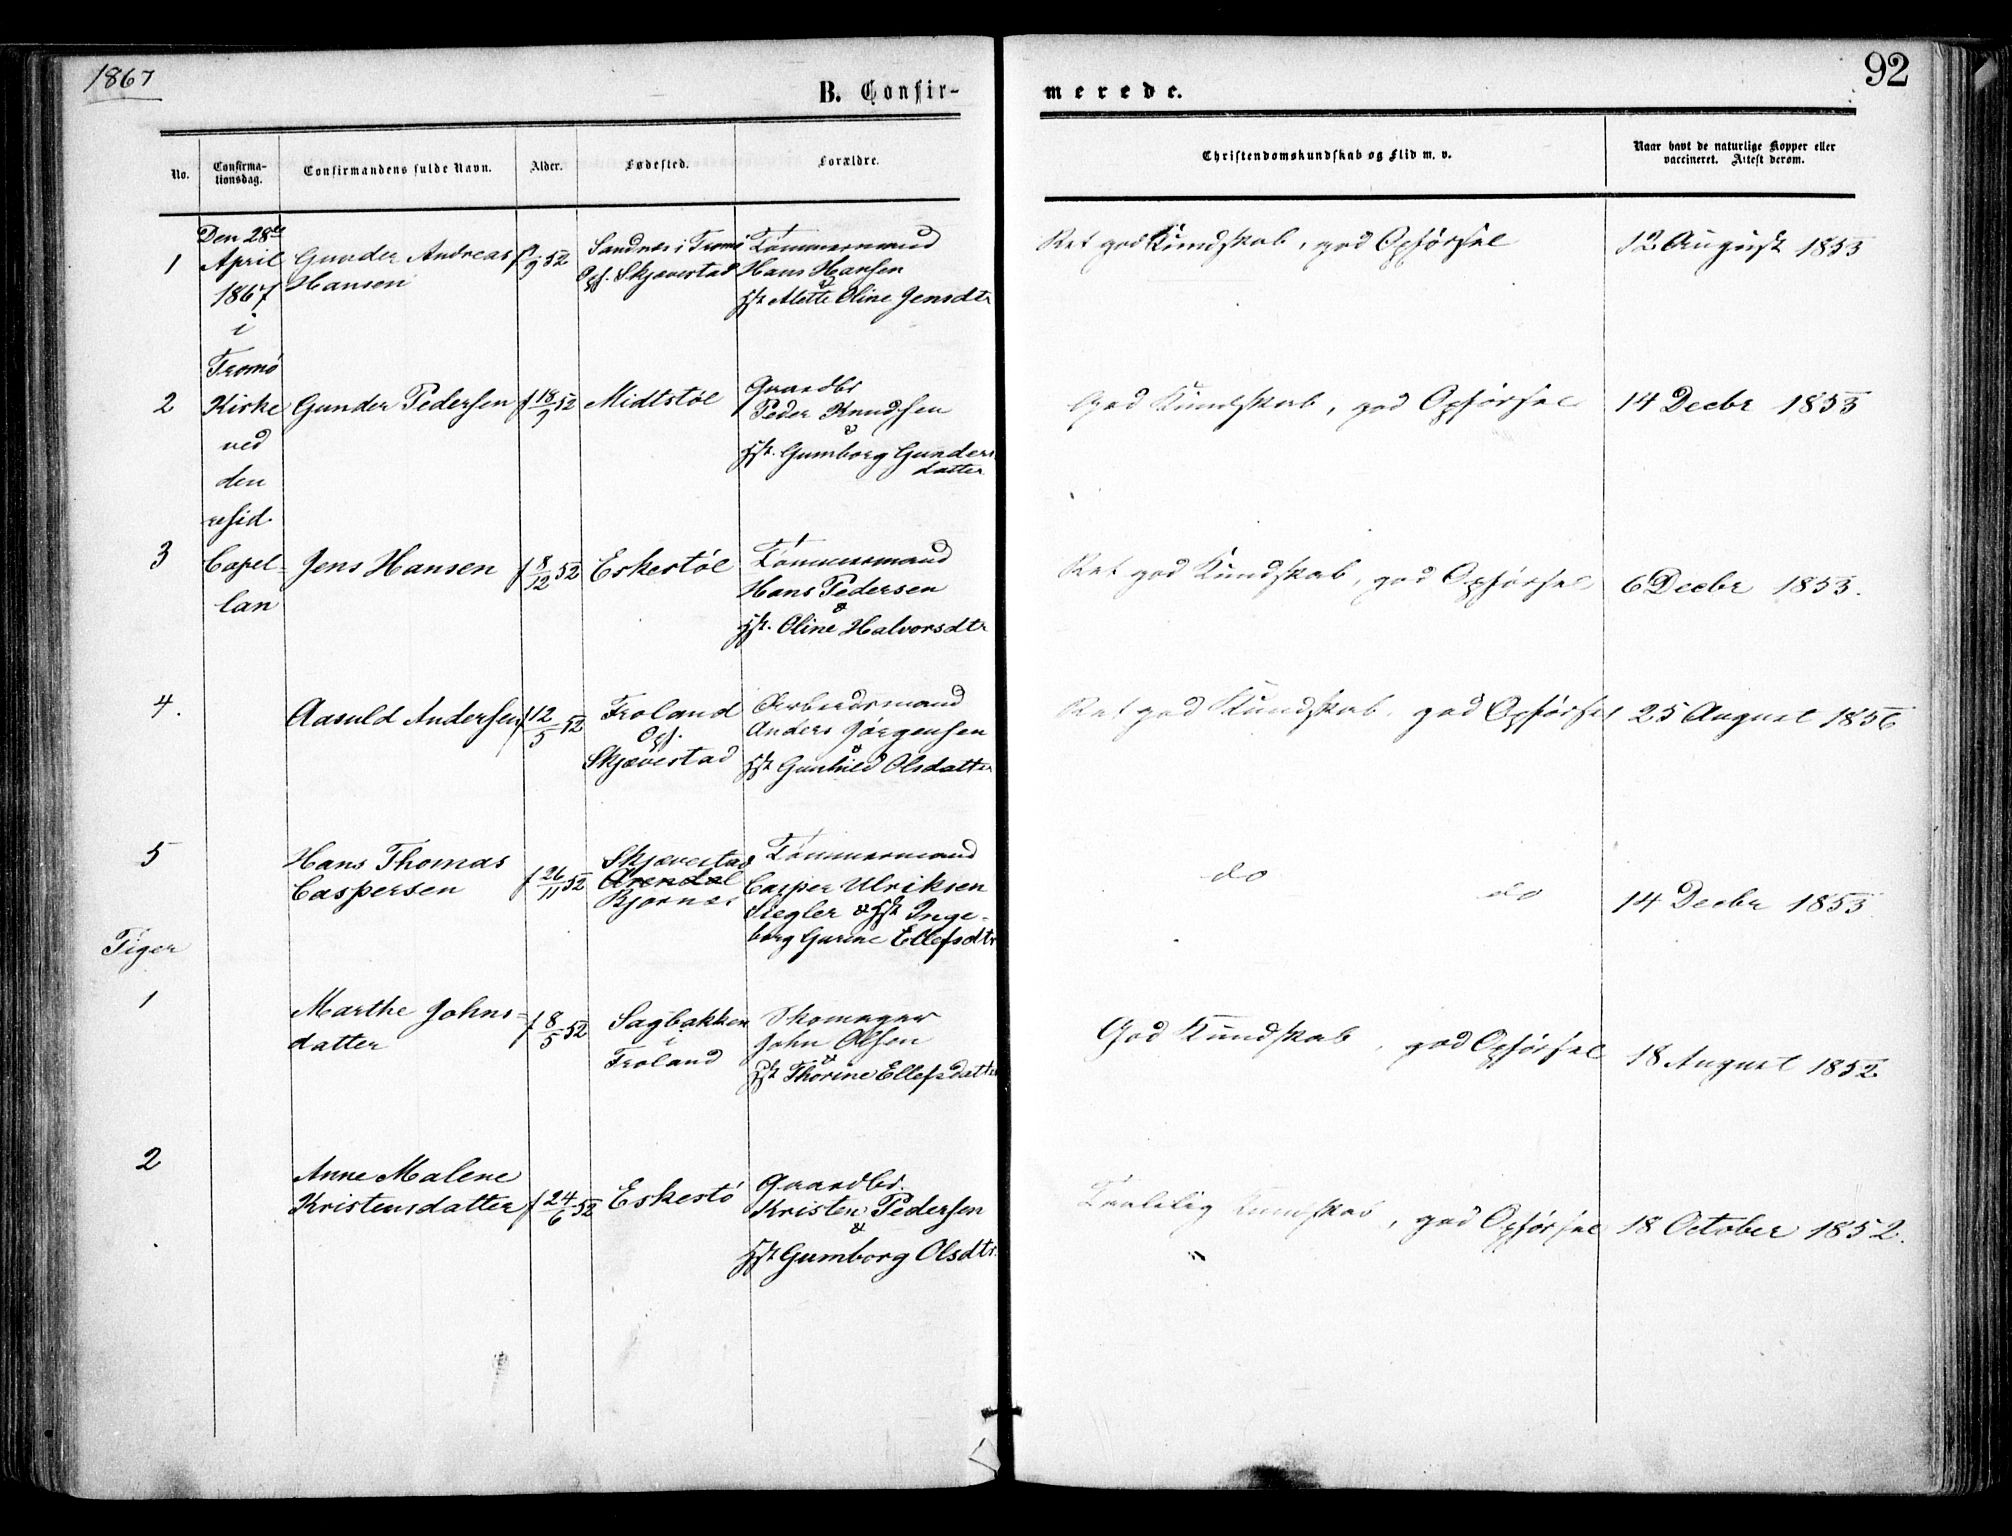 1867
B. Confir-
merede.
92
No.
Confirma-
tionsdag.
Confirmandens fulde Navn.
Alder.
Fødested.
Forældre.
Christendomskundskab og Flid m. v.
Naar havt de naturlige Kopper eller
vaccineret. Attest derom.
Den 28de
April
1867
i
Tromø
Kirke
ved
den
resid.
Capel-
lan
1
Gunder Andreas
Hansen
Sandnes i Tromø
Opf. Skjævestad
Tømmermand
Hans Hansen
&
Hst. Alette Oline Jensdtr
Ret god Kundskab, god Opførsel
12 August 1853
2
Gunder Pedersen
f 18/9 52
Midtstøl
Gaardbr
Peder Knudsen
&
Hst. Gumborg Gunders
datter
God Kundskab, god Opførsel
14 Decbr 1853
3
Jens Hansen
f 8/12 52
Eskestøl
Tømmermand
Hans Pedersen
&
Hst. Oline Halvorsdtr
Ret god Kundskab, god Opførsel
6 Decbr 1853.
4.
Aasuld Andersen
f 12/5 52
Froland
Opf.
Skjævestad
Arbeidsmand
Anders Jørgensen
&
Hst Gunhild Olsdatter
Ret god Kundskab, god Opførsel
25 August 1856
5
Hans Thomas
Caspersen
f 26/11 52
Skjævestad
Arendal
Bjornes
Tømmermand
Casper Ulriksen
Siegler & Hst Inge-
borg Gurine Ellefsdtr
do do
14 Decbr 1853
Piger
1
Marthe Johns-
datter
f 8/5 52
Sagbakken
i
Froland
Skomager
John Olsen
&
Hst Thorine Ellefsdatter
God Kundskab, god Opførsel
18 August 1852
2
Anne Malene
Kristensdatter
f 24/6 52
Eskestø
Gaardbr.
Kristen Pedersen
&
Hst Gumborg Olsdtr.
Taalelig Kundskab, god Opførsel
18 October 1852.